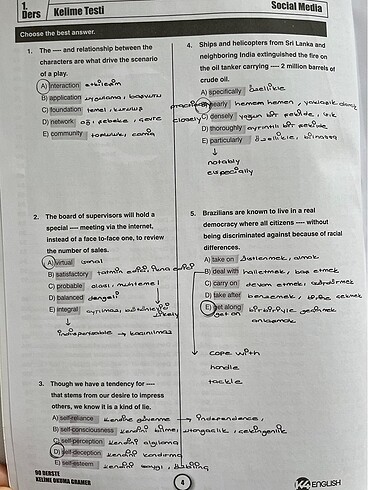 1.
Ders
Kelime Testi
Social Media
Choose the best answer.
1. The ---- and relationship between the
characters are what drive the scenario
of a play.
A) interaction etkileşim
B) application uygulama, başvuru
C) foundation temel, kuruluş
D) network ağ, şebeke, çevre
E) community topluluk, camia
2. The board of supervisors will hold a
special ---- meeting via the internet,
instead of a face-to-face one, to review
the number of sales.
A) virtual sanal
B) satisfactory tatmin edici,
C) probable olası, muhtemel
D) balanced dengeli
E) integral ayrılmaz, bütünleyici
likely
↓
indispensable → kaçınılmaz
3. Though we have a tendency for ----
that stems from our desire to impress
others, we know it is a kind of lie.
A) self-reliance kendine güvenme → independence,
B) self-consciousness kendini bilme, utangaçlık, çekingenlik
C) self-perception kendini algılama
D) self-deception kendini kandırma
E) self-esteem kendine saygı,
4. Ships and helicopters from Sri Lanka and
neighboring India extinguished the fire on
the oil tanker carrying ---- 2 million barrels of
crude oil.
A) specifically özellikle
B) nearly hemen hemen, yaklaşık olarak
closely C) densely yoğun bir şekilde, sık
D) thoroughly ayrıntılı bir şekilde
E) particularly özellikle, bilhassa
↓
notably
especially
5. Brazilians are known to live in a real
democracy where all citizens ---- without
being discriminated against because of racial
differences.
A) take on üstlenmek, almak
B) deal with halletmek, baş etmek
C) carry on devam etmek, sürdürmek
D) take after benzemek, birine çekmek
E) get along birbiriyle geçinmek
get on anlaşmak
cope with
handle
tackle
90 DERSTE
KELİME OKUMA GRAMER
4
ENGLISH